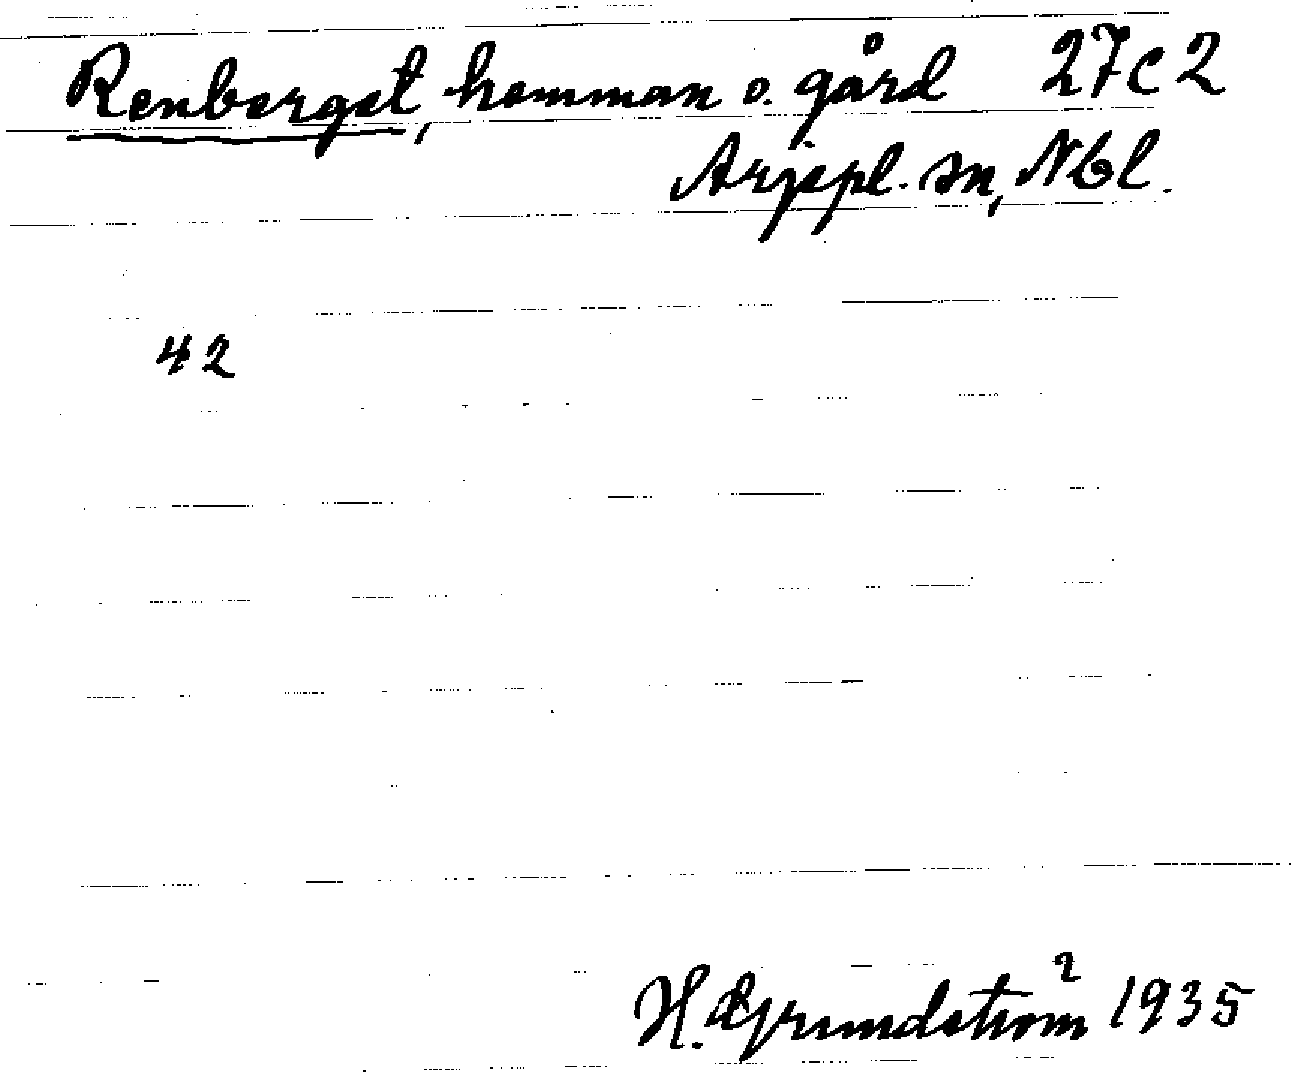 Renberget, hemman o. gård 27C2
Arjepl. sn, Nbl.
42
H. Grundström 1935